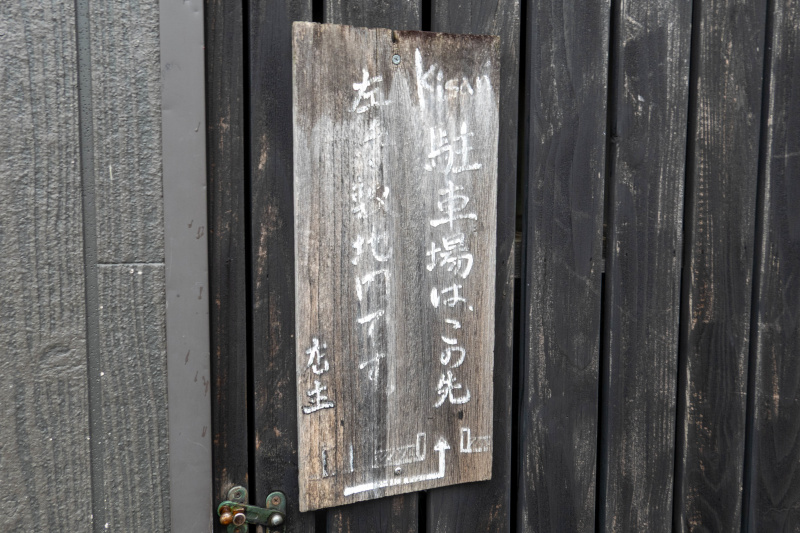 Kisari
駐車場はこの先
左手敷地内です
店主